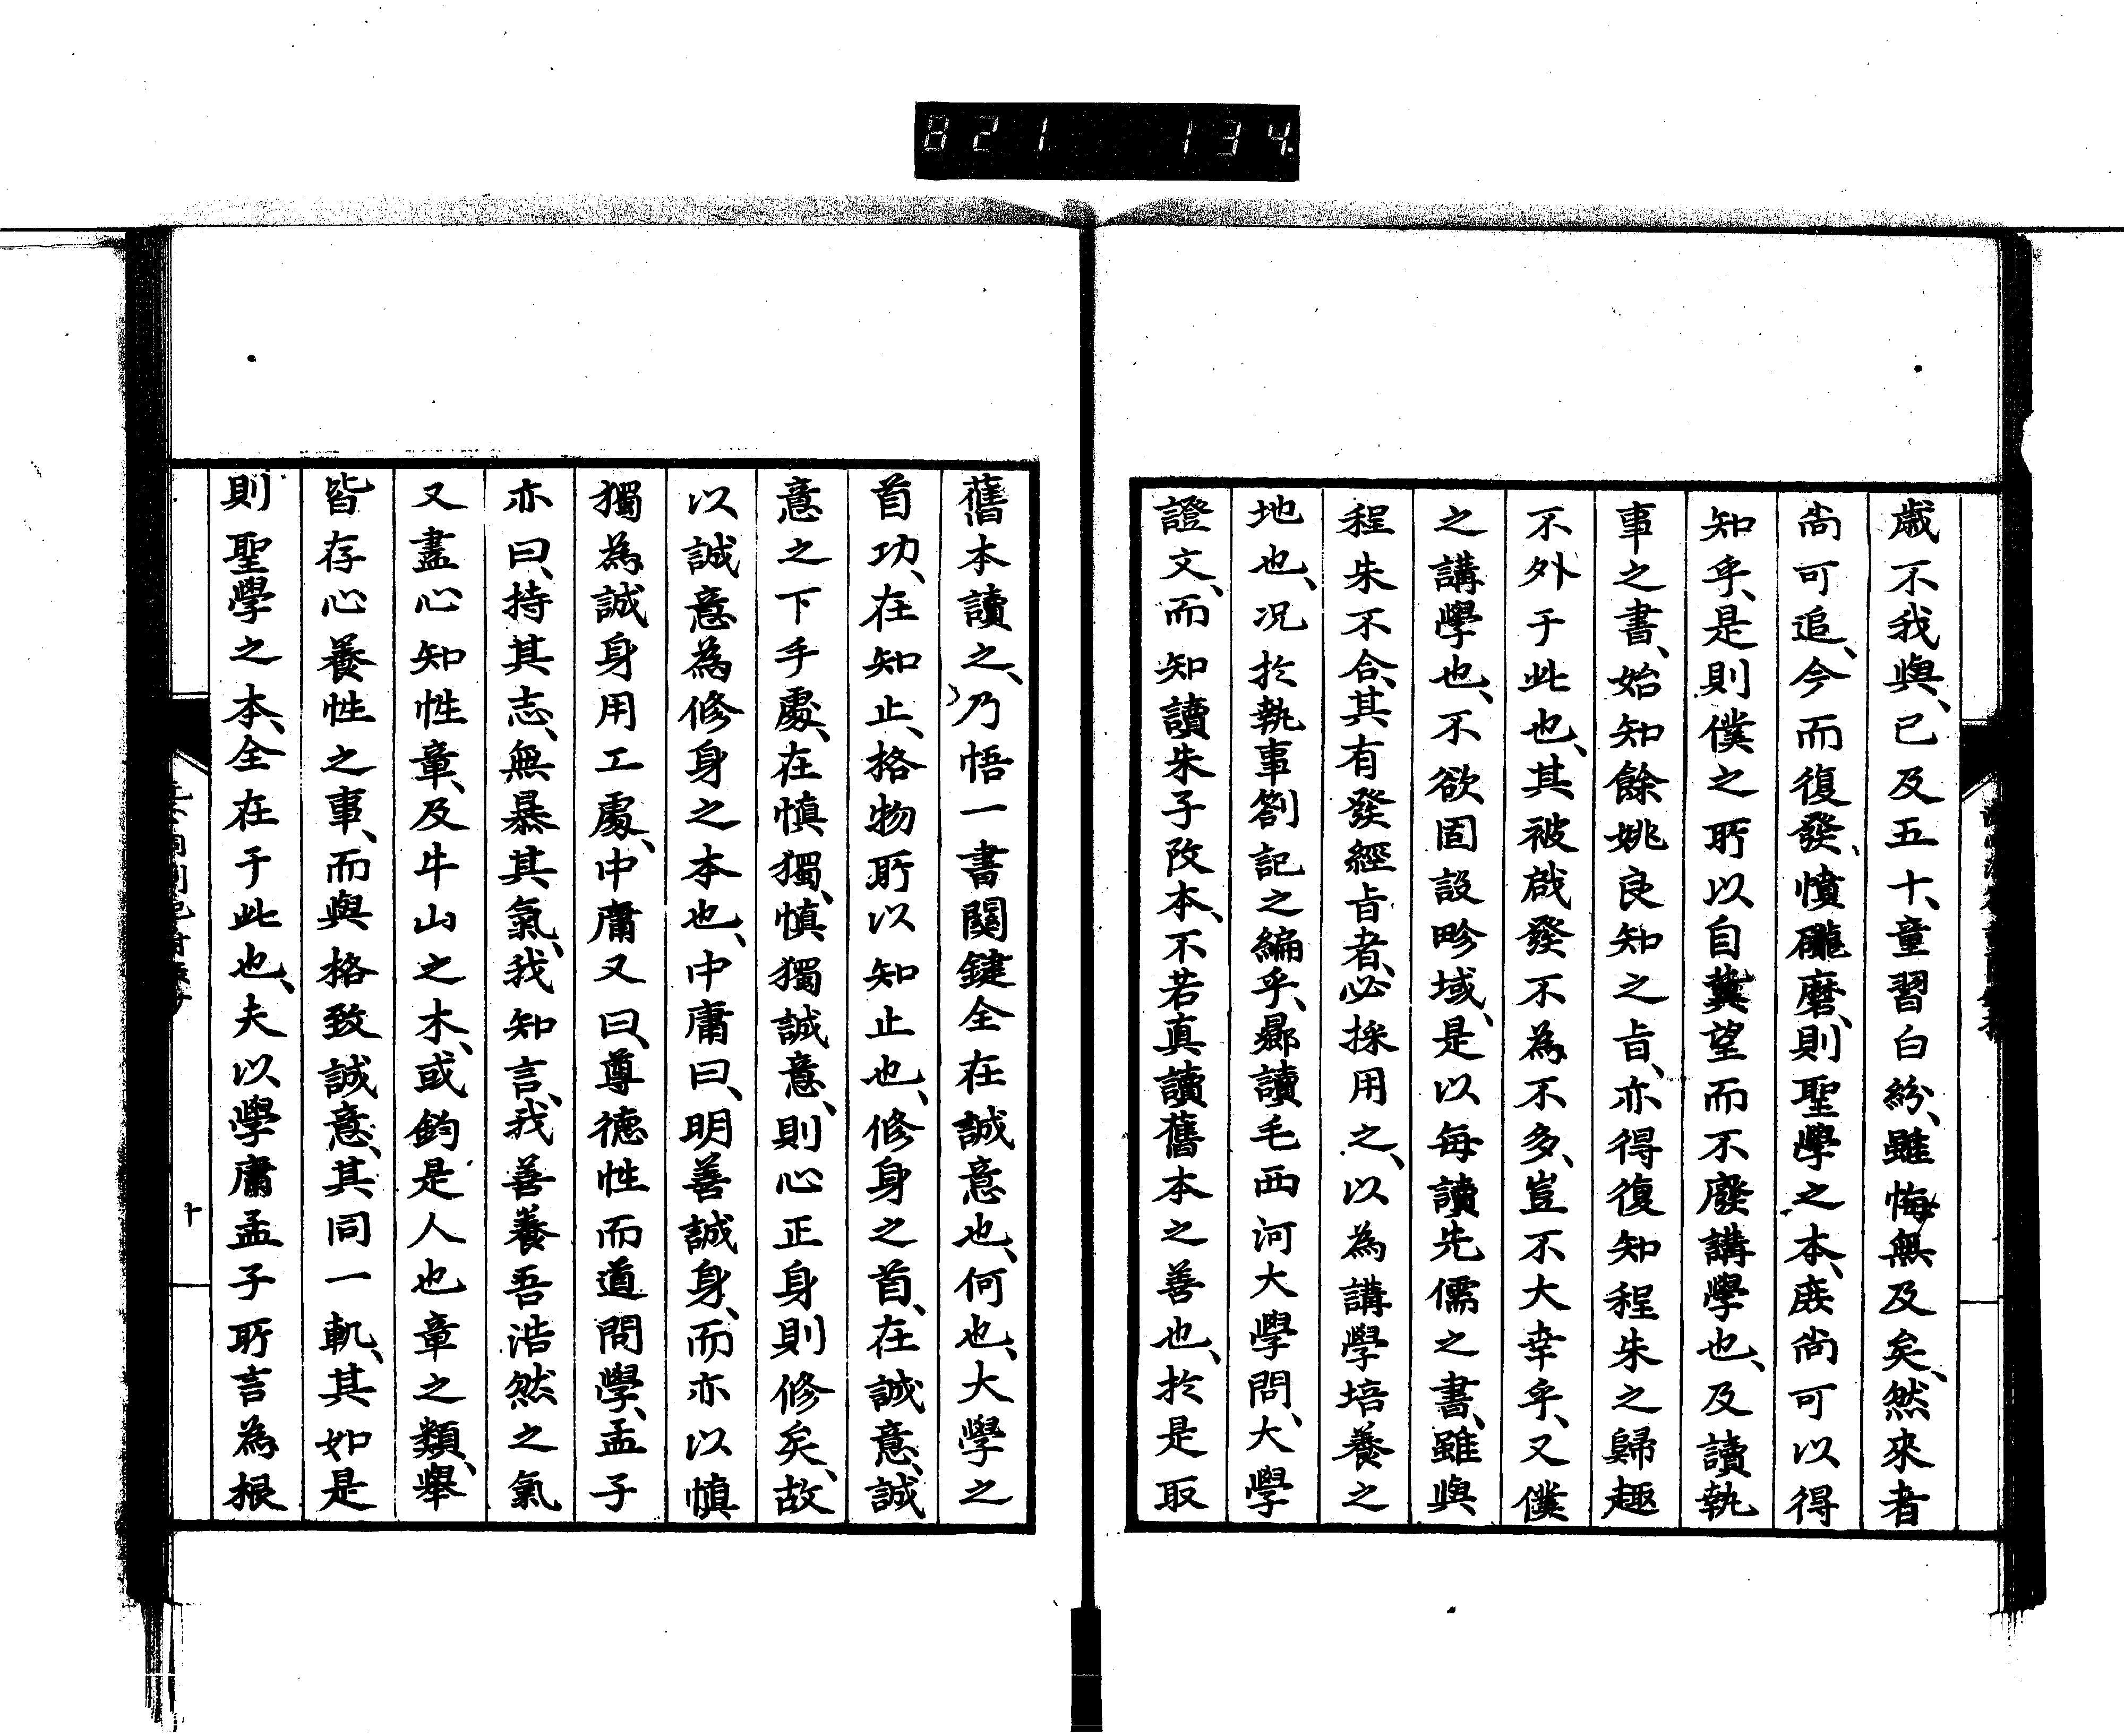 821 134
歲不我與、已及五十、童習白紛、雖悔無及矣、然來者
尚可追、今而復發憤礲磨、則聖學之本、庶尚可以得
知乎、是則僕之所以自冀望而不廢講學也、及讀執
事之書、始知餘姚良知之旨、亦得復知程朱之歸趣
不外于此也、其被啟發不為不多、豈不大幸乎、又僕
之講學也、不欲固設畛域、是以每讀先儒之書、雖與
程朱不合、其有發經旨者、必採用之、以為講學培養之
地也、况於執事劄記之編乎、鄉讀毛西河大學問、大學
證文、而知讀朱子改本、不若真讀舊本之善也、於是取
舊本讀之、乃悟一書關鍵全在誠意也、何也、大學之
首功、在知止、格物所以知止也、修身之首、在誠意、誠
意之下手處、在慎獨、慎獨誠意、則心正身則修矣、故
以誠意為修身之本也、中庸曰、明善誠身、而亦以慎
獨為誠身用工處、中庸又曰、尊德性而道問學、孟子
亦曰、持其志、無暴其氣、我知言、我善養吾浩然之氣
又盡心知性章、及牛山之木、或鈞是人也章之類、舉
皆存心養性之事、而與格致誠意、其同一軌、其如是
則聖學之本、全在于此也、夫以學庸孟子所言為根